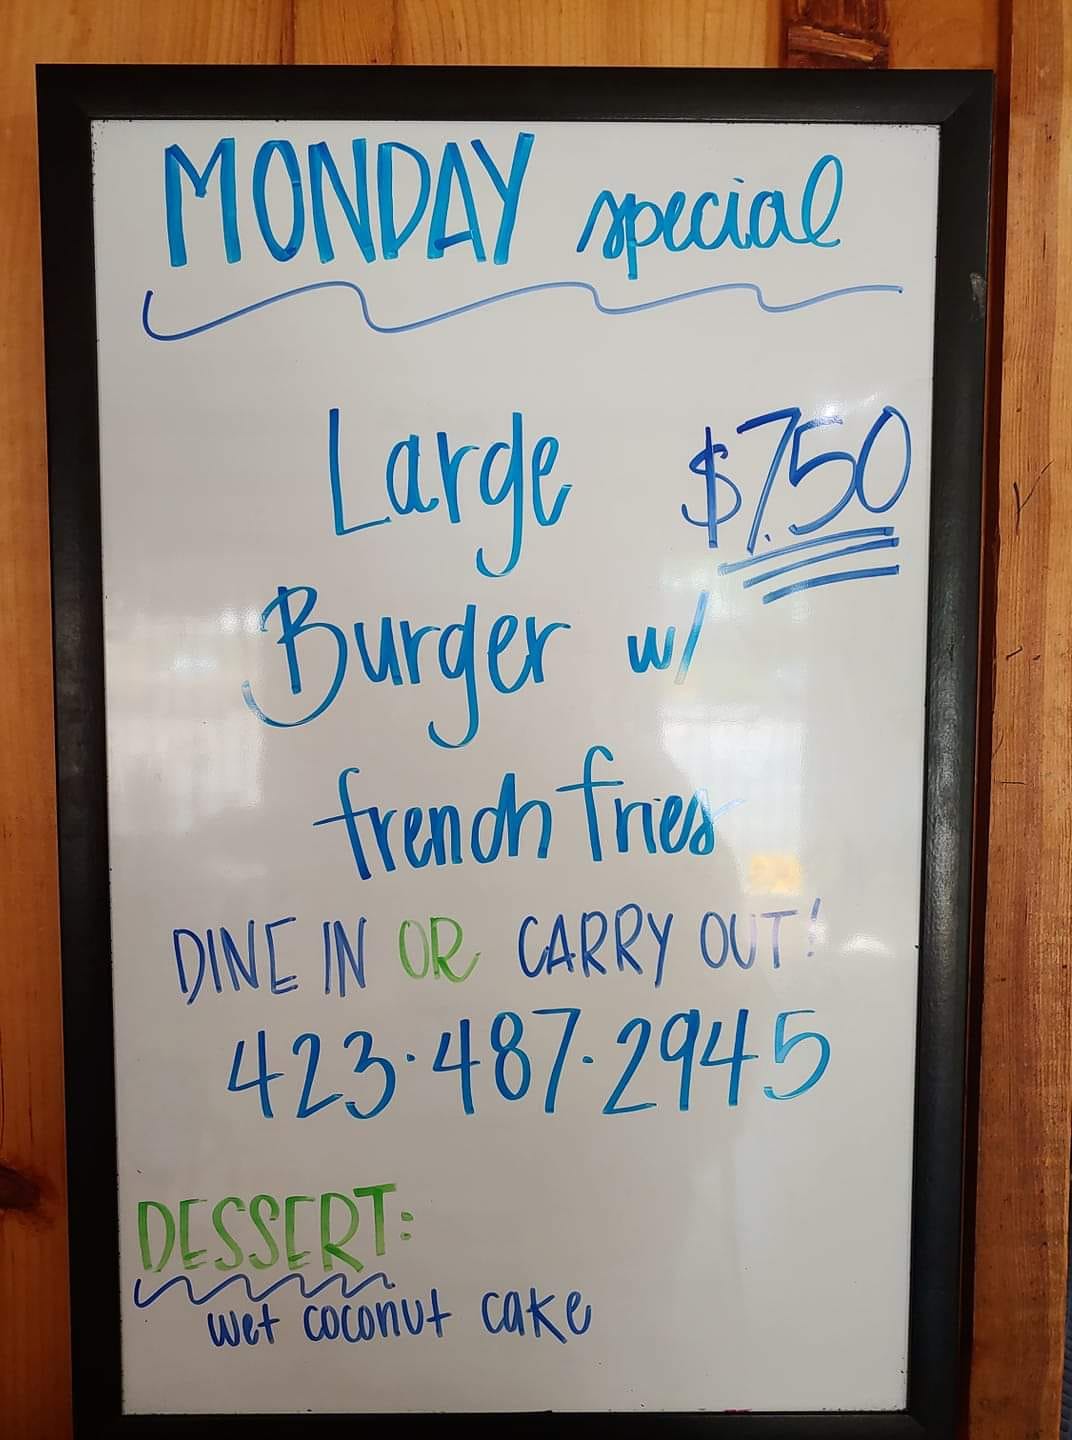 MONDAY special
Large $7.50
Burger w/
french fries
DINE IN OR CARRY OUT!
423·487·2945
DESSERT:
wet coconut cake